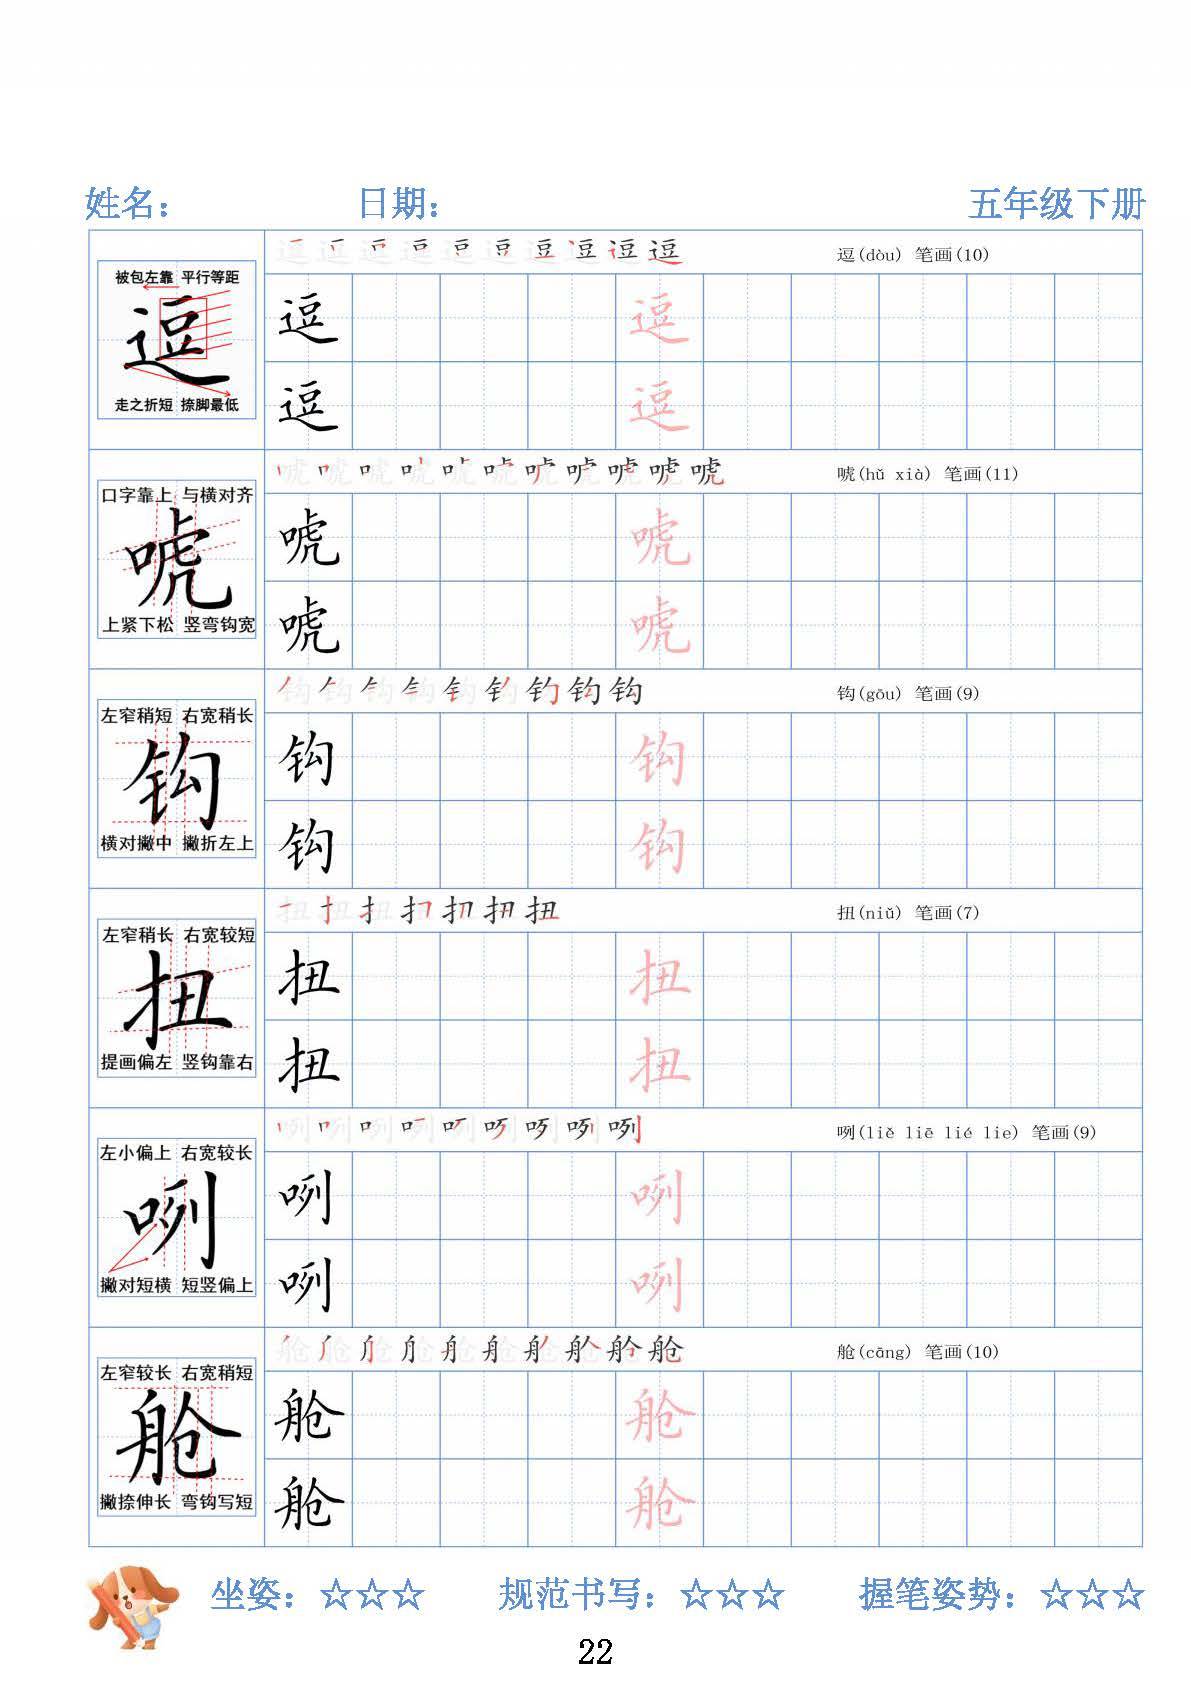 姓名： 日期： 五年级下册
逗(dòu) 笔画(10)
被包左靠 平行等距
逗
走之折短 捺脚最低
逗 逗
逗 逗
唬(hǔ xià) 笔画(11)
口字靠上 与横对齐
唬
上紧下松 竖弯钩宽
唬 唬
唬 唬
钩(gōu) 笔画(9)
左窄稍短 右宽稍长
钩
横对撇中 撇折左上
钩 钩
钩 钩
扭(niǔ) 笔画(7)
左窄稍长 右宽较短
扭
提画偏左 竖钩靠右
扭 扭
扭 扭
咧(liě liē lié lie) 笔画(9)
左小偏上 右宽较长
咧
撇对短横 短竖偏上
咧 咧
咧 咧
舱(cāng) 笔画(10)
左窄较长 右宽稍短
舱
撇捺伸长 弯钩写短
舱 舱
舱 舱
坐姿：☆☆☆ 规范书写：☆☆☆ 握笔姿势：☆☆☆
22